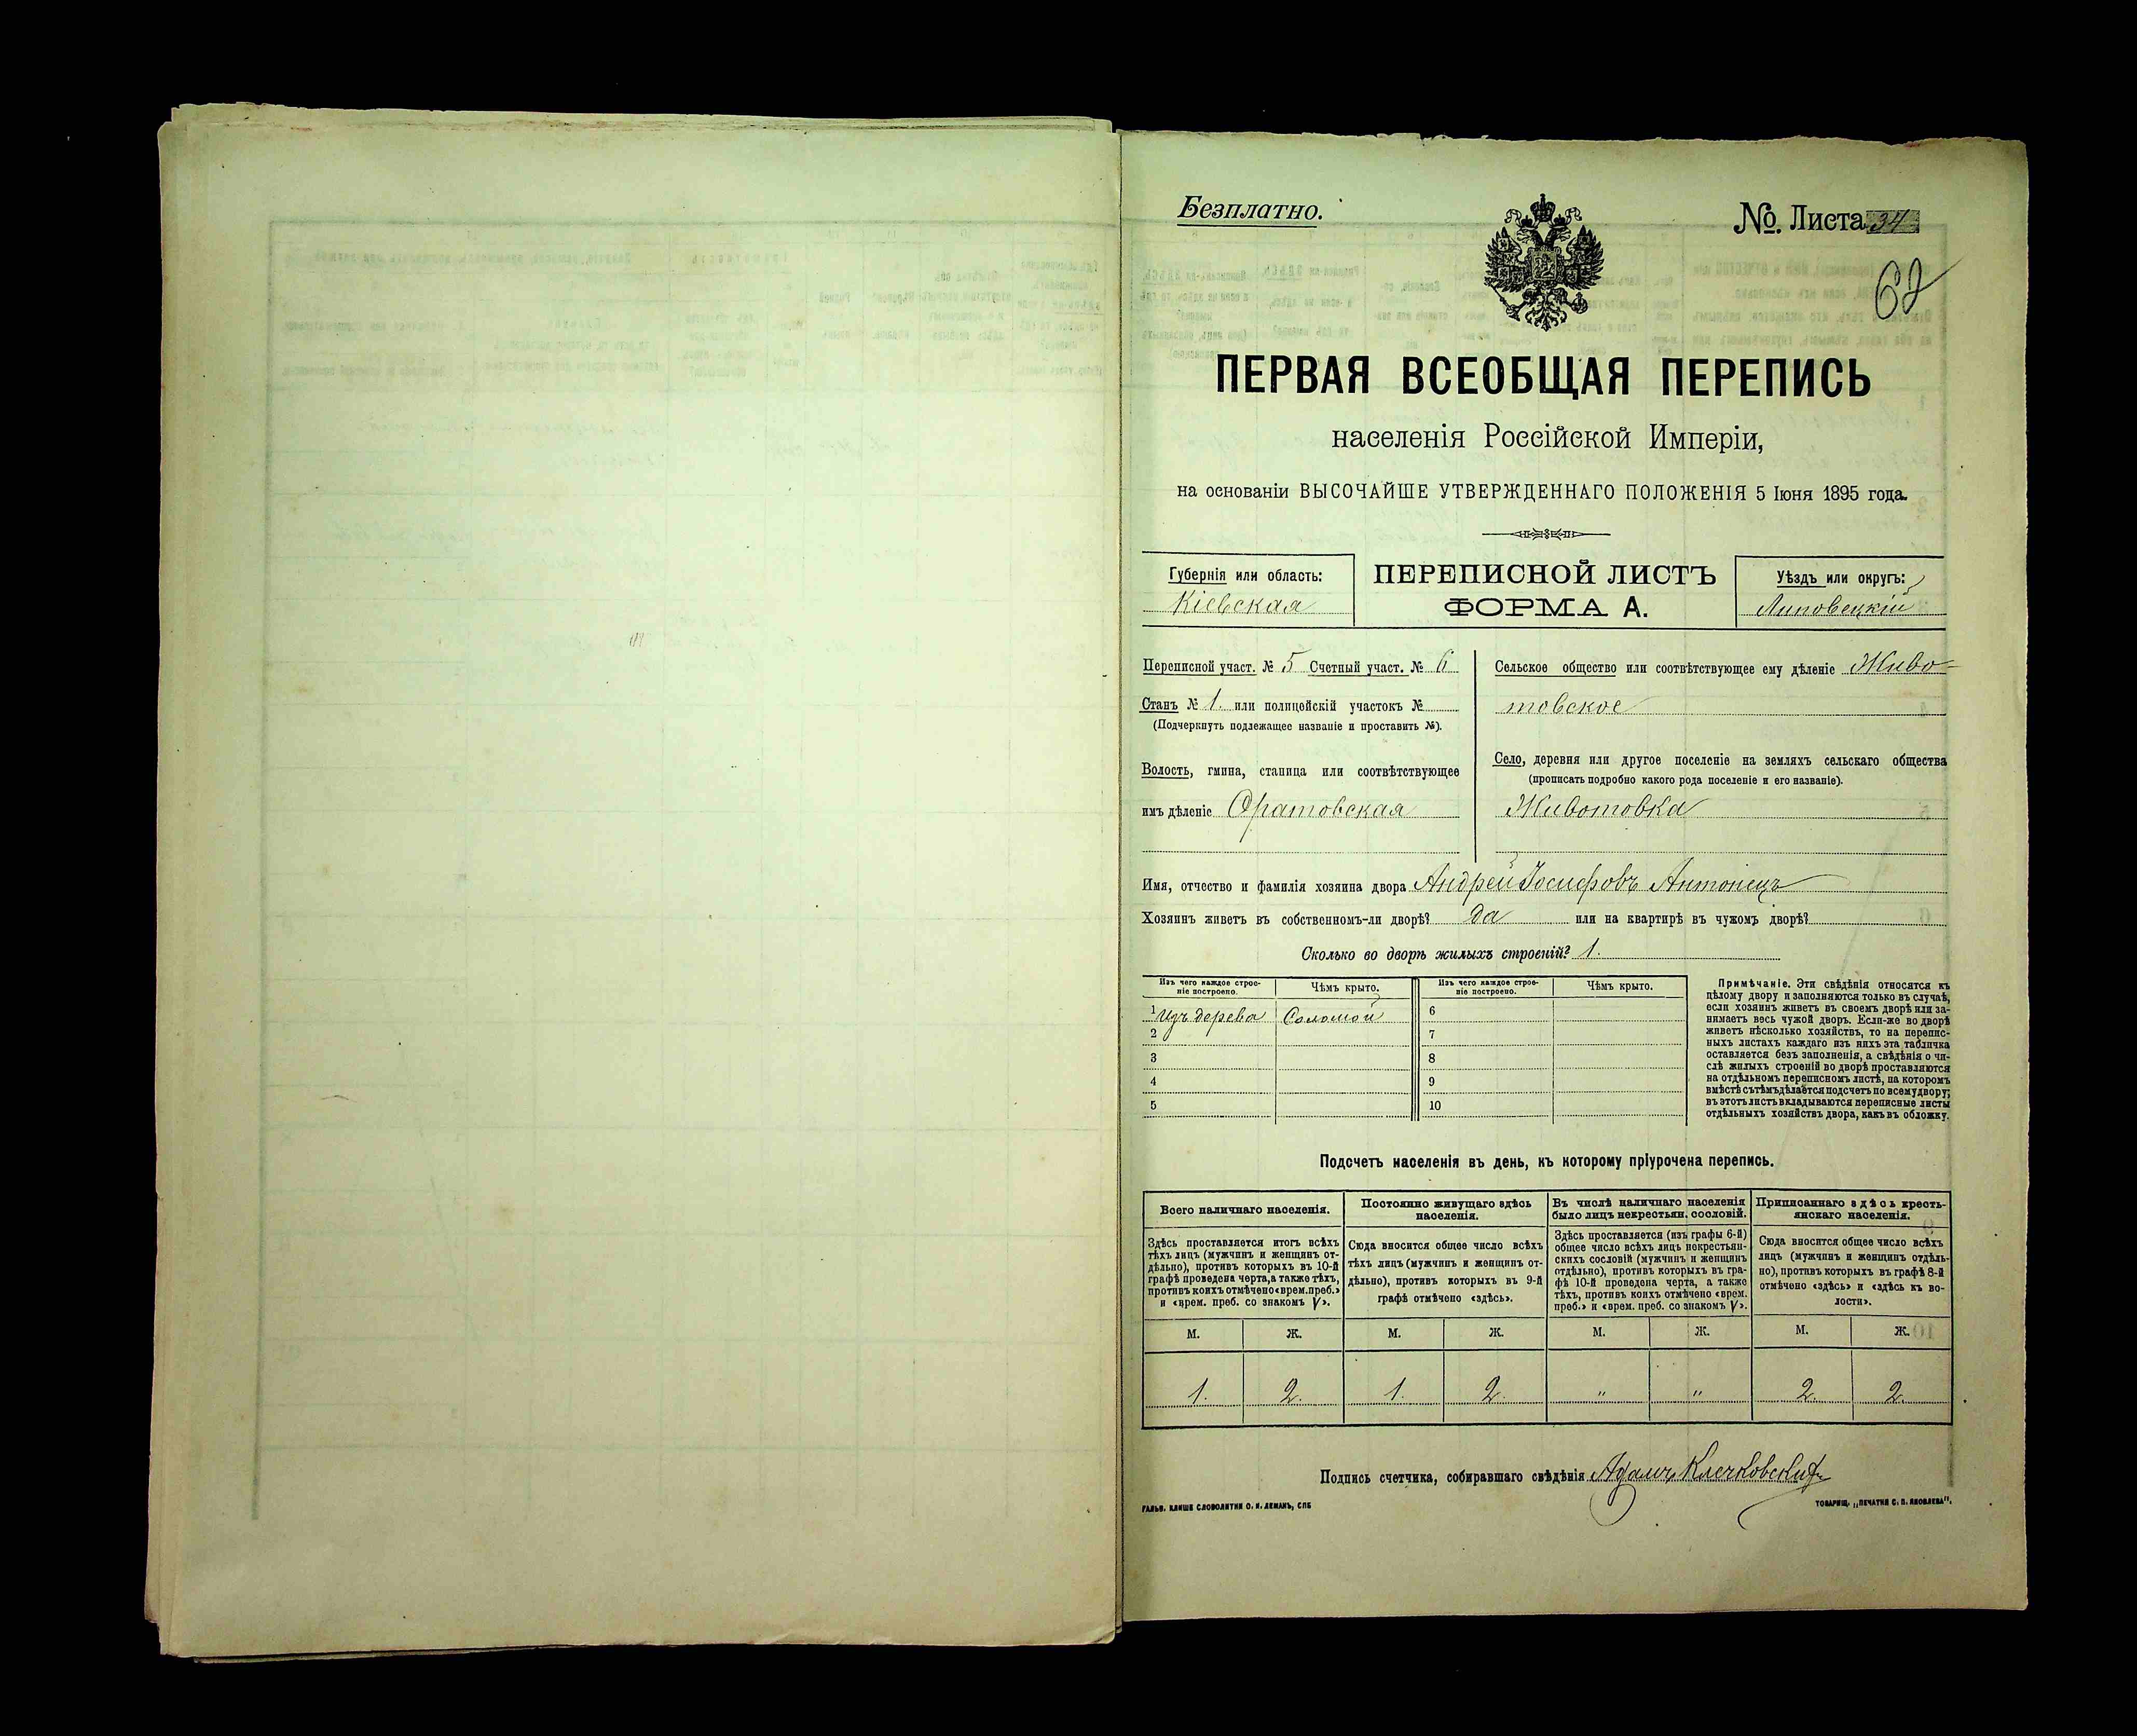 Безплатно.
№. Листа 34
62
ПЕРВАЯ ВСЕОБЩАЯ ПЕРЕПИСЬ
населенія Россійской Имперіи,
на основаніи ВЫСОЧАЙШЕ УТВЕРЖДЕННАГО ПОЛОЖЕНІЯ 5 Іюня 1895 года.
Губернія или область:
Кіевская
ПЕРЕПИСНОЙ ЛИСТЪ
ФОРМА А.
Уѣздъ или округъ:
Липовецкій
Переписной участ. № 5 Счетный участ. № 6
Станъ № 1. или полицейскій участокъ №
(Подчеркнуть подлежащее названіе и проставить №).
Волость, гмина, станица или соотвѣтствующее
имъ дѣленіе Оратовская
Сельское общество или соотвѣтствующее ему дѣленіе Живо-
товское
Село, деревня или другое поселеніе на земляхъ сельскаго общества
(прописать подробно какого рода поселеніе и его названіе).
Животовка
Имя, отчество и фамилія хозяина двора Андрей Іосифовъ Антонецъ
Хозяинъ живетъ въ собственномъ-ли дворѣ? да или на квартирѣ въ чужомъ дворѣ?
Сколько во дворѣ жилыхъ строеній? 1.
Изъ чего каждое строе-
ніе построено.
Чѣмъ крыто.
Изъ чего каждое строе-
ніе построено.
Чѣмъ крыто.
1 Изъ дерева Соломой 6
2 7
3 8
4 9
5 10
Примѣчаніе. Эти свѣдѣнія относятся къ
цѣлому двору и заполняются только въ случаѣ,
если хозяинъ живетъ въ своемъ дворѣ или за-
нимаетъ весь чужой дворъ. Если-же во дворѣ
живетъ нѣсколько хозяйствъ, то на перепис-
ныхъ листахъ каждаго изъ нихъ эта табличка
оставляется безъ заполненія, а свѣдѣнія о чи-
слѣ жилыхъ строеній во дворѣ проставляются
на отдѣльномъ переписномъ листѣ, на которомъ
вмѣстѣ съ тѣмъ дѣлается подсчетъ по всему двору;
въ этотъ листъ вкладываются переписные листы
отдѣльныхъ хозяйствъ двора, какъ въ обложку.
Подсчетъ населенія въ день, къ которому пріурочена перепись.
Всего наличнаго населенія.
Здѣсь проставляется итогъ всѣхъ
тѣхъ лицъ (мужчинъ и женщинъ от-
дѣльно), противъ которыхъ въ 10-й
графѣ проведена черта, а также тѣхъ,
противъ коихъ отмѣчено «врем. преб.»
и «врем. преб. со знакомъ V».
Постоянно живущаго здѣсь
населенія.
Сюда вносится общее число всѣхъ
тѣхъ лицъ (мужчинъ и женщинъ от-
дѣльно), противъ которыхъ въ 9-й
графѣ отмѣчено «здѣсь».
Въ числѣ наличнаго населенія
было лицъ некрестьян. сословій.
Здѣсь проставляется (изъ графы 6-й)
общее число всѣхъ лицъ некрестьян-
скихъ сословій (мужчинъ и женщинъ
отдѣльно), противъ которыхъ въ гра-
фѣ 10-й проведена черта, а также
тѣхъ, противъ коихъ отмѣчено «врем.
преб.» и «врем. преб. со знакомъ V».
Приписаннаго здѣсь кресть-
янскаго населенія.
Сюда вносится общее число всѣхъ
лицъ (мужчинъ и женщинъ отдѣль-
но), противъ которыхъ въ графѣ 8-й
отмѣчено «здѣсь» и «здѣсь къ во-
лости».
М. Ж. М. Ж. М. Ж. М. Ж.
1. 2. 1. 2. " " 2. 2.
Подпись счетчика, собиравшаго свѣдѣнія Адамъ Клечковскій
ГАЛЬВ. КЛИШЕ СЛОВОЛИТНИ О. И. ЛЕМАНЪ, СПБ
ТОВАРИЩ. „ПЕЧАТНЯ С. П. ЯКОВЛЕВА".